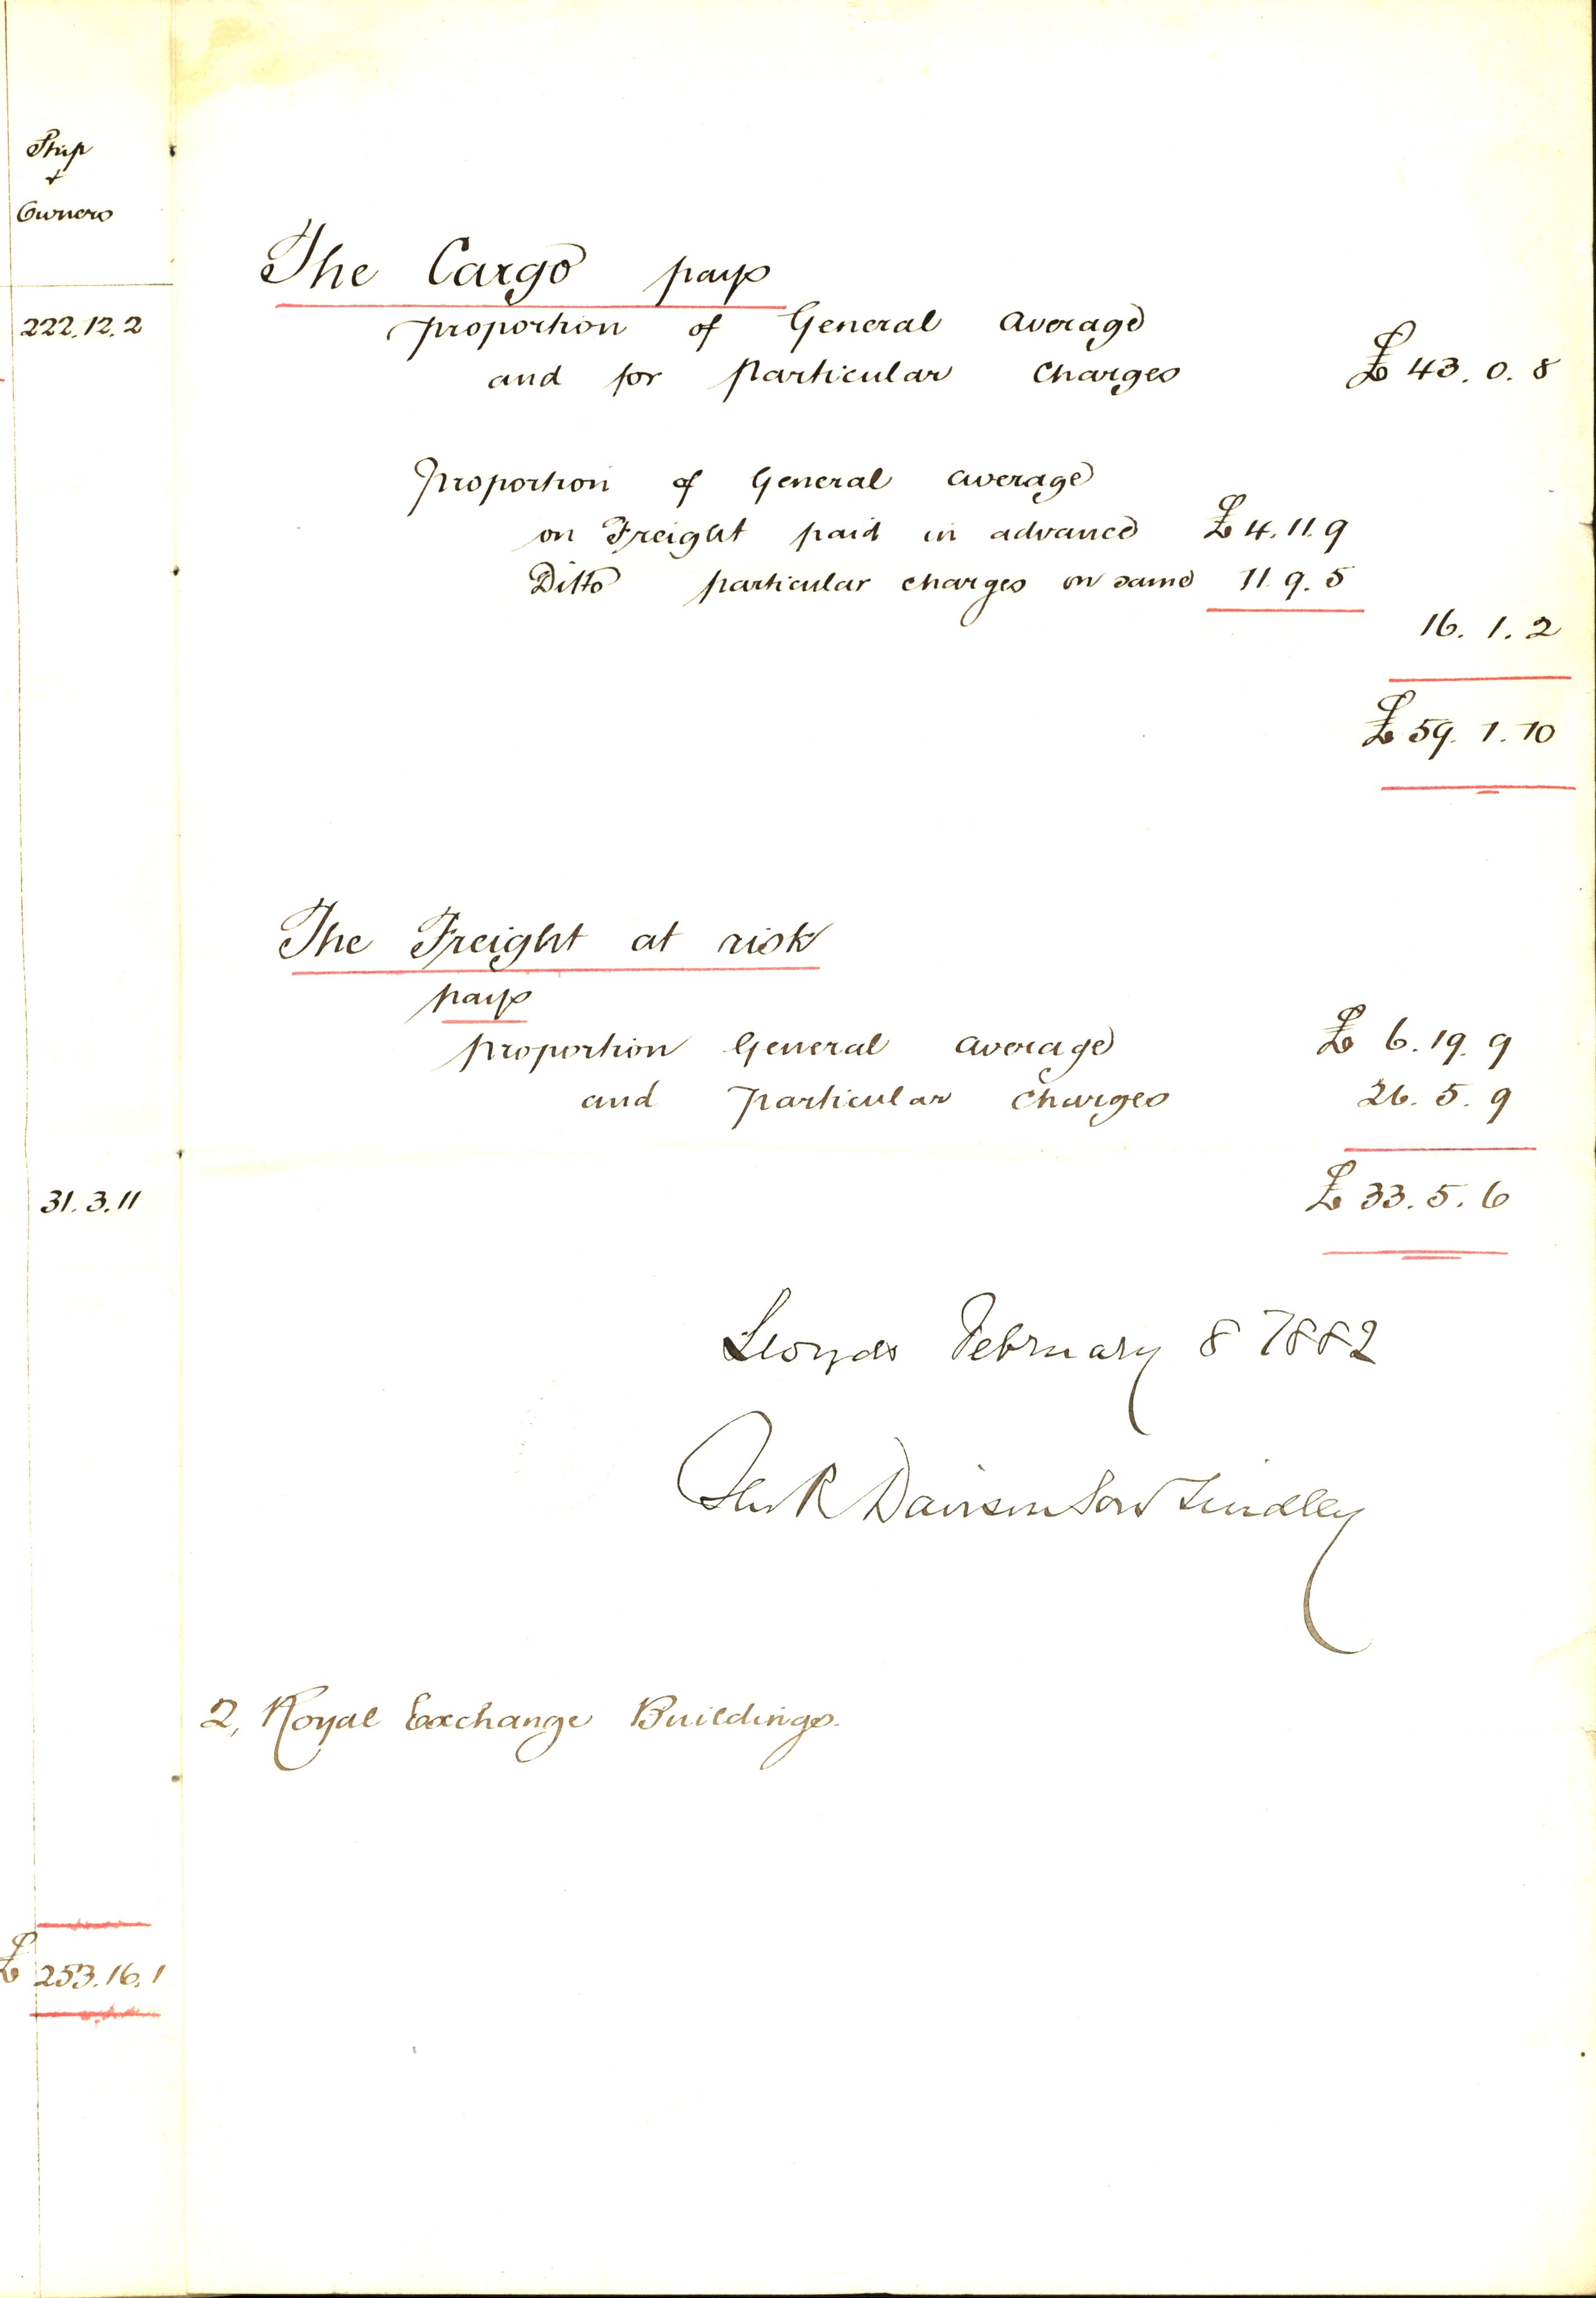 Ship
&
Owners
222.12.2
31.3.11
£ 253.16.1
The Cargo pays
proportion of General average
and for particular Charges £ 43. 0. 8
Proportion of General average
on Freight paid in advance £ 4.11.9
Ditto particular charges on same 11.9.5
16. 1. 2
£ 59. 1. 10
The Freight at risk
pays
proportion General average £ 6.19.9
and particular charges 26.5.9
£ 33.5.6
Lloyds February 8 1882
R Davison Son Lindley
2, Royal Exchange Buildings.